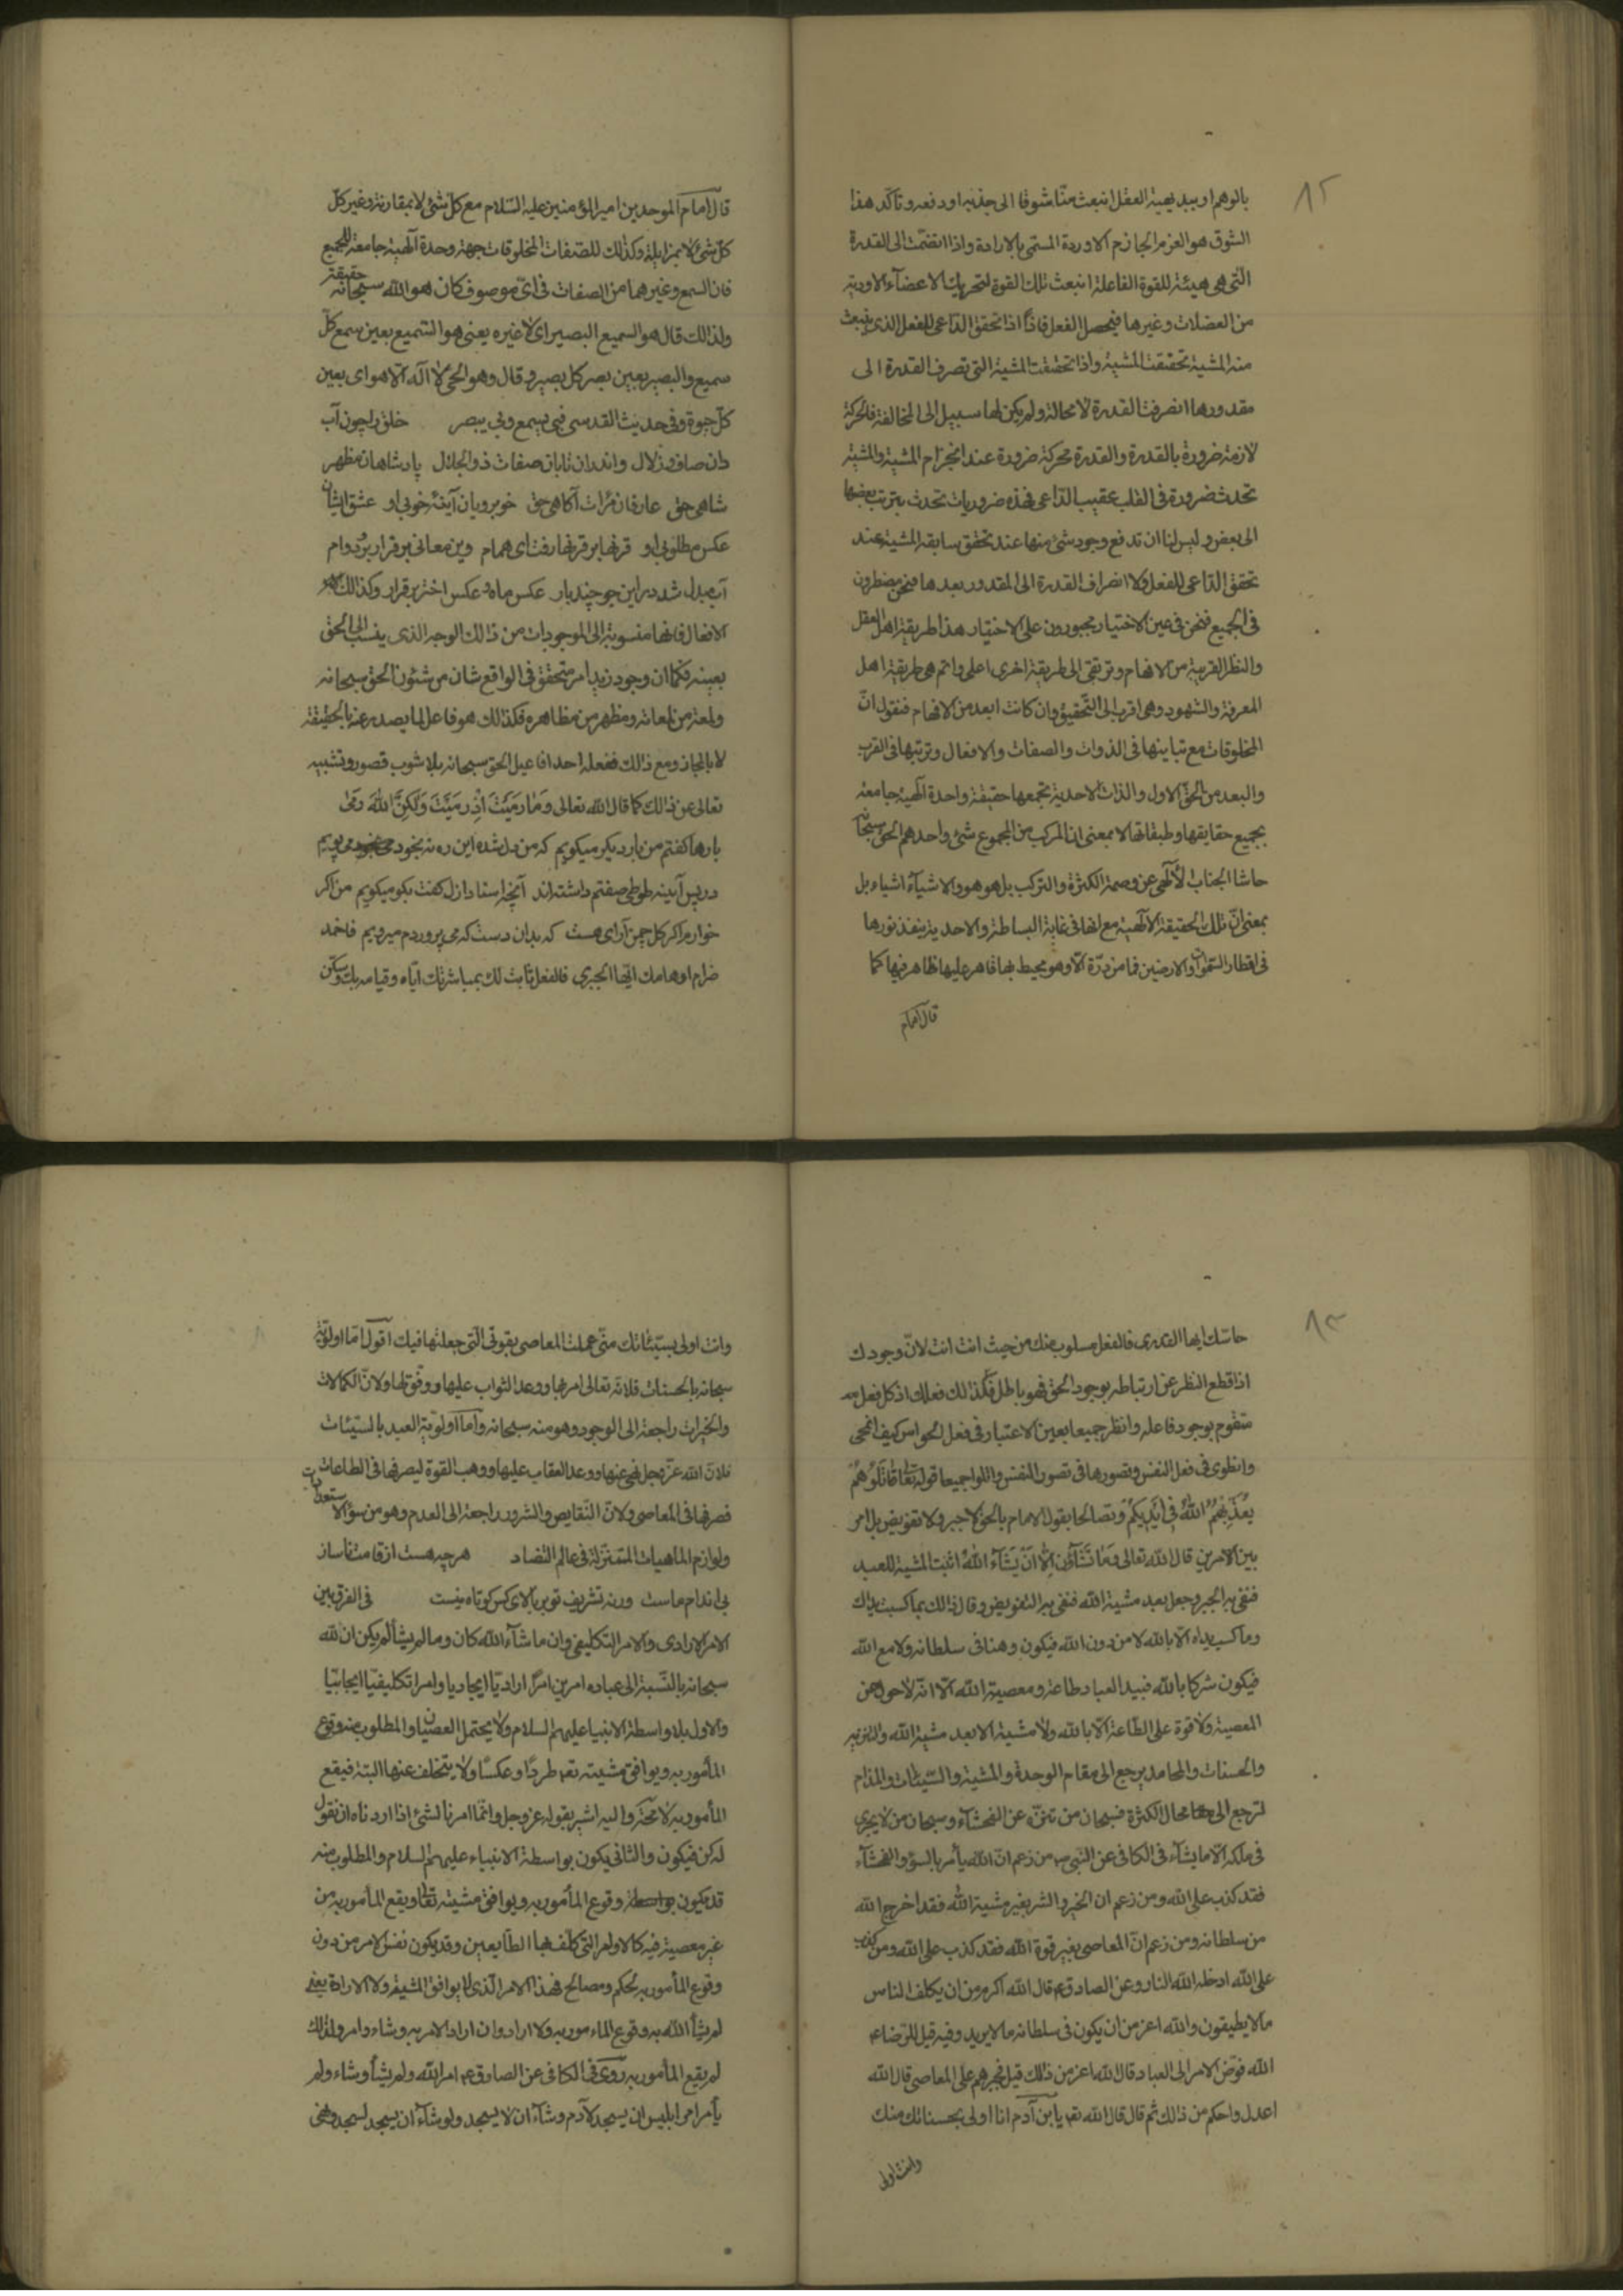 ٨٢
بالوهم او ببديهية العقل انبعث منّا شوقا الى جذبه او دفعه و تاكّد هذا
الشوق هو العزم الجازم الاوردة المسمّى بالارادة واذا انضمّت الى القدرة
التى هى هيئة للقوة الفاعلة انبعث تلك القوة لتحريك الاعضآء الادوية
من العضلات وغيرها فيحصل الفعل فاذًا اذا تحقق الداعى للفعل الذى ينبعث
منه المشية تحققت المشية واذا تحققت المشية التى تصرف القدرة الى
مقدورها انصرفت القدرة لا محالة ولم يكن لها سبيل الى المخالفة فالحركة
لازمة ضرورة بالقدرة والقدرة محركة ضرورة عند انجزام المشية والمشية
تحدث ضرورة فى القلب عقيب الدّاعى فهذه ضروريات تحدث يترتب بعضها
الى بعض وليس لنا ان ندفع وجود شئ منها عند تحقق سابقه المشية عند
تحقق الداعى للفعل ولا انصراف القدرة الى المقدور بعدها فنحن مضطرون
فى الجميع فنحن فى عين الاختيار مجبورون على الاختيار هذا طريقة اهل العقل
والنظر القريبة من الافهام ونرتقى الى طريقة اخرى اعلى واتم هى طريقة اهل
المعرفة والشهود وهى اقرب الى التّحقيق وان كانت ابعد من الافهام فنقول انّ
المخلوقات مع تباينها فى الذوات والصفات والافعال وترتبها فى القرب
والبعد من الحقّ الاول والذات الاحدية تجمعها حقيقة واحدة الٓهية جامعة
بجميع حقايقها وطبقاتها لا بمعنى ان المركب من المجموع شئ واحد هم الحق سبحانه
حاشا الجناب الالٓهى عن وصمة الكثرة والتركب بل هو هو والاشيآء اشياء بل
بمعنى انّ تلك الحقيقة الالٓهية مع انها فى غاية البساطة والاحدية ينفذ نورها
فى اقطار السّموات والارضين فما من ذرّة الّا وهو محيط بها قاهر عليها ظاهر فيها كما
قال امام
قال امام الموحدين امير المؤمنين عليه السّلام مع كلّ شئ لا بمقارنة وغير كلّ
كلّ شئ لا بمزايلة وكذلك للصّفات المخلوقات جهة وحدة الٓهية جامعة للجميع
فان السمع وغيرهما من الصفات فى اىّ موصوف كان هو الله سبحانه حقيقة
ولذالك قال هو السميع البصير اى لا غيره يعنى هو السّميع بعين سمع كلّ
سميع والبصير بعين بصر كل بصير و قال وهو الحىّ لا الٓه الّا هو اى بعين
كلّ حيوة وفى حديث القدسى فبى يسمع وبى يبصر خلق را چون آب
دان صاف و زلال واندران تابان صفات ذوالجلال پادشاهان مظهر
شاهى حق عارفان مرات آگاهى حق خوبرويان آينهٔ خوبى او عشق ايشان
عكس مطلوبى او قرنها بر قرنها رفت اى همام وين معانى برقرار بر دوام
آب مبدل شد در اين جو چند بار عكس ماه و عكس اختر برقرار وكذالك
الافعال فانها منسوبة الى الموجودات من ذالك الوجه الذى ينسب الى الحق
بعينه فكما ان وجود زيد امر متحقق فى الواقع شان من شئون الحق سبحانه
ولمعة من لمعاته ومظهر من مظاهره فكذالك هو فاعل لما يصدر عنه بالحقيقة
لا بالمجاز ومع ذالك ففعله احد افاعيل الحق سبحانه بلا شوب قصور وتشبيه
تعالى عن ذالك كما قال الله تعالى وَمَا رَمَيْتَ اِذْ رَمَيْتَ وَلٰكِنَّ اللهَ رَمىٰ
بارها گفتم من بار ديگر ميگويم كه من دل شده اين ره نه بخود مىپويم
در پس آينه طوطى صفتم داشته اند آنچه استاد ازل گفت بگو ميگويم من اگر
خوارم اگر گل چمن آراى هست كه بدان دست كه مى پروردم ميرويم فاخمد
ضرام اوهامك ايّها الجبرى فالفعل ثابت لك بمباشرتك ايّاه وقيامه بك وسكّن
٨٣
حاسّك ايها القدرى فالفعل مسلوب منك من حيث انت انت لانّ وجودك
اذا قطع النظر عن ارتباطه بوجود الحق فهو باطل فكذالك فعلك اذ كل فعل
متقوم بوجود فاعله وانظر جميعا بعين الاعتبار فى فعل الحواس كيف انمحى
وانطوى فى فعل النفس وتصورها فى تصور النفس واتلوا جميعا قوله تعالى قَاتِلُوهُمْ
يُعَذِّبْهُمُ اللهُ فِى اَيْدِيكُمْ وتصالحا بقول الامام بالحق لا جبر ولا تفويض بل امر
بين الامرين قال الله تعالى وَمَا تَشَآؤُنَ اِلَّا اَنْ يَشَآءَ اللهُ اثبت المشية للعبد
فنفى به الجبر وجعل بعد مشية الله فنفى به التفويض وقال ذالك بما كسبت يداك
وما كسب يداه الّا بالله لا من دون الله فيكون وهنا فى سلطانه ولا مع الله
فيكون شركا بالله فبيد العباد طاعة ومعصية الله الّا انّه لا حول عن
المعصية ولا قوة على الطّاعة الّا بالله ولا مشية الا بعد مشية الله والتنزيه
والحسنات والمحامد يرجع الى مقام الوحدة والمشية والسّيئات والمذام
ترجع الى محال الكثرة فسبحان من تنزّه عن الفحشآء وسبحان من لا يجرى
فى ملكه الّا ما يشآء فى الكافى عن النّبى ص من زعم انّ الله يأمر بالسوء والفحشآء
فقد كذب على الله ومن زعم ان الخير والشر بغير مشية الله فقد اخرج الله
من سلطانه ومن زعم انّ المعاصى بغير قوة الله فقد كذب على الله ومن كذب
على الله ادخله الله النار وعن الصادق ع قال الله اكرم من ان يكلف الناس
ما لا يطيقون والله اعز من ان يكون فى سلطانه ما لا يريد وفيه قيل للرّضا ع
الله فوّض الامر الى العباد قال الله اعز من ذالك قيل فجبرهم على المعاصى قال الله
اعدل واحكم من ذالك ثم قال قال الله تع يا بن آدم انا اولى بحسناتك منك
وانت اولى
وانت اولى بسيّئاتك منّى عملت المعاصى بقوتى الّتى جعلتها فيك اقول امّا اولويّة
سبحانه بالحسنات فلانّه تعالى امر بها ووعد الثواب عليها ووفق لها ولانّ الكمالات
والخيرات راجعة الى الوجود وهو منه سبحانه وامّا اولويّة العبد بالسّيئات
فلانّ الله عزّ وجل نهى عنها ووعد العقاب عليها ووهب القوة ليصرفها فى الطاعات
فصرفها فى المعاصى ولانّ النّقايص والشرور راجعة الى العدم وهو من سؤالا
ولوازم الماهيات المتنزلة فى عالم التضاد هرچه هست از قامت ناساز
بى اندام ماست ورنه تشريف تو بر بالاى كس كوتاه نيست فى الفرق بين
الامر الارادى والامر التكليفى وان ما شآء الله كان وما لم يشأ لم يكن ان لله
سبحانه بالنّسبة الى عباده امرين امرًا اراديّا ايجاديا وامرا تكليفيّا ايجابيّا
والاول بلا واسطة الانبيا عليهم السلام ولا يحتمل العصيان والمطلوب منه وقوع
المأمور به ويوافق مشيته تعه طردًا وعكسًا ولا يتخلف عنها البتة فيقع
المأمور به لا محة واليه اشير بقوله عز وجل وانّما امرنا لشئ اذا اردناه ان نقول
له كن فيكون والثانى يكون بواسطة الانبياء عليهم السلام والمطلوب منه
قد يكون وقوع المأمور به ويوافق مشيته تعالى ويقع المأمور به من
غير معصية فيه كالاوامر التى كلّف بها الطّايعين وقد يكون نفس الامر من دون
وقوع المأمور به لحكم ومصالح فهذا الامر الّذى لا يوافق المشية ولا الارادة يعنى
لم يشأ الله به وقوع المامور به ولا اراد وان اراد الامر به وشاء وامر ولذلك
لم يقع المأمور به روى فى الكافى عن الصادق ع امر الله ولم يشأ وشاء ولم
يأمر امر ابليس ان يسجد لآدم وشآء ان لا يسجد ولو شآء ان يسجد لسجد ونهى